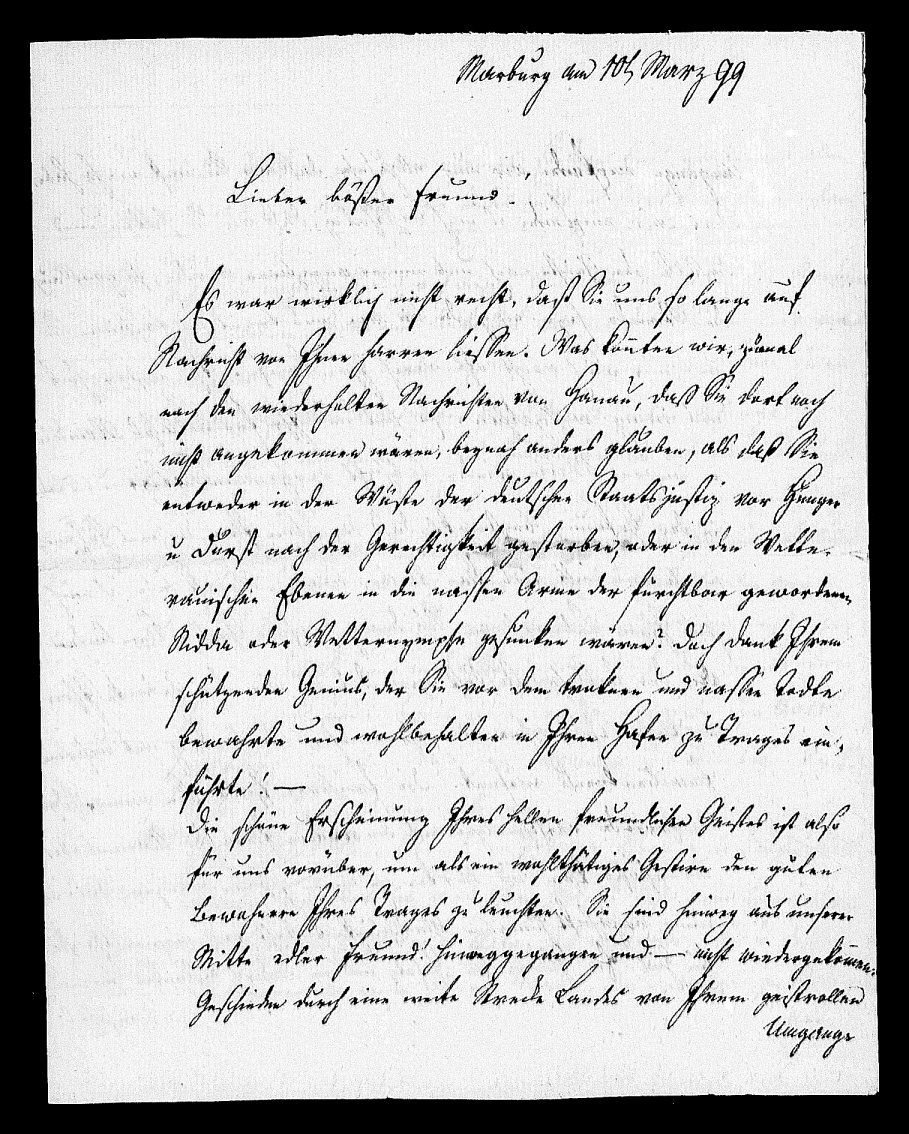 Marburg am 10t März 99
Lieber böser Freund!
Es war wirklich nicht recht, daß Sie uns so lange auf
Nachricht von Ihnen harren liessen. Was konten wir, zumal
nach den wiederholten Nachrichten von Hanau, daß Sie dort noch
nicht angekommen wären, beynah anders glauben, als daß Sie
entweder in der Wüste der deutschen Staatsjustiz vor Hunger
u Durst nach der Gerechtigkeit gestorben, oder in den Wette-
rauischen Ebenen in die nassen Arme der furchtbar gewordenen
Nidda oder Wetternymphe gesunken wären? Doch Dank Ihrem
schützenden Genius, der Sie vor dem troknen und nassen Todte
bewahrte und wohlbehalten in Ihren Hafen zu Trages ein-
führte! —
Die schöne Erscheinung Ihres hellen freundlichen Geistes ist also
für uns vorüber, um als ein wohlthätiges Gestirn den guten
Bewohnern Ihres Trages zu leuchten. Sie sind hinweg aus unserer
Mitte edler Freund! hinweggegangen und — nicht wiedergekomen.
Geschieden durch eine weite Strecke Landes von Ihrem geistvollen
Umgange